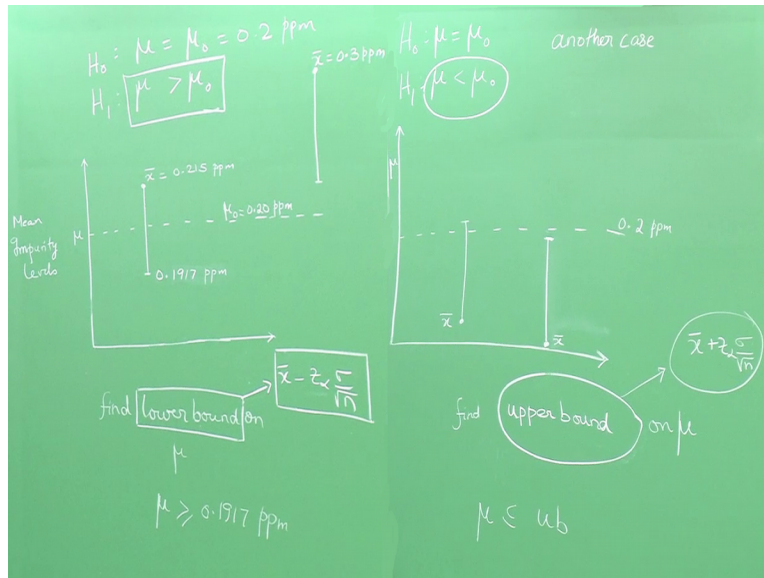 H₀: μ = μ₀ = 0.2 ppm
H₁: μ > μ₀
x̄ = 0.3 ppm
x̄ = 0.215 ppm
μ₀ = 0.20 ppm
Mean
Impurity
levels
μ
0.1917 ppm
x̄ - z_α σ/√n
find lower bound on
μ
μ ≥ 0.1917 ppm
H₀: μ = μ₀
another case
H₁: μ < μ₀
μ
0.2 ppm
x̄
x̄
x̄ + z_α σ/√n
find upper bound on μ
μ ≤ ub